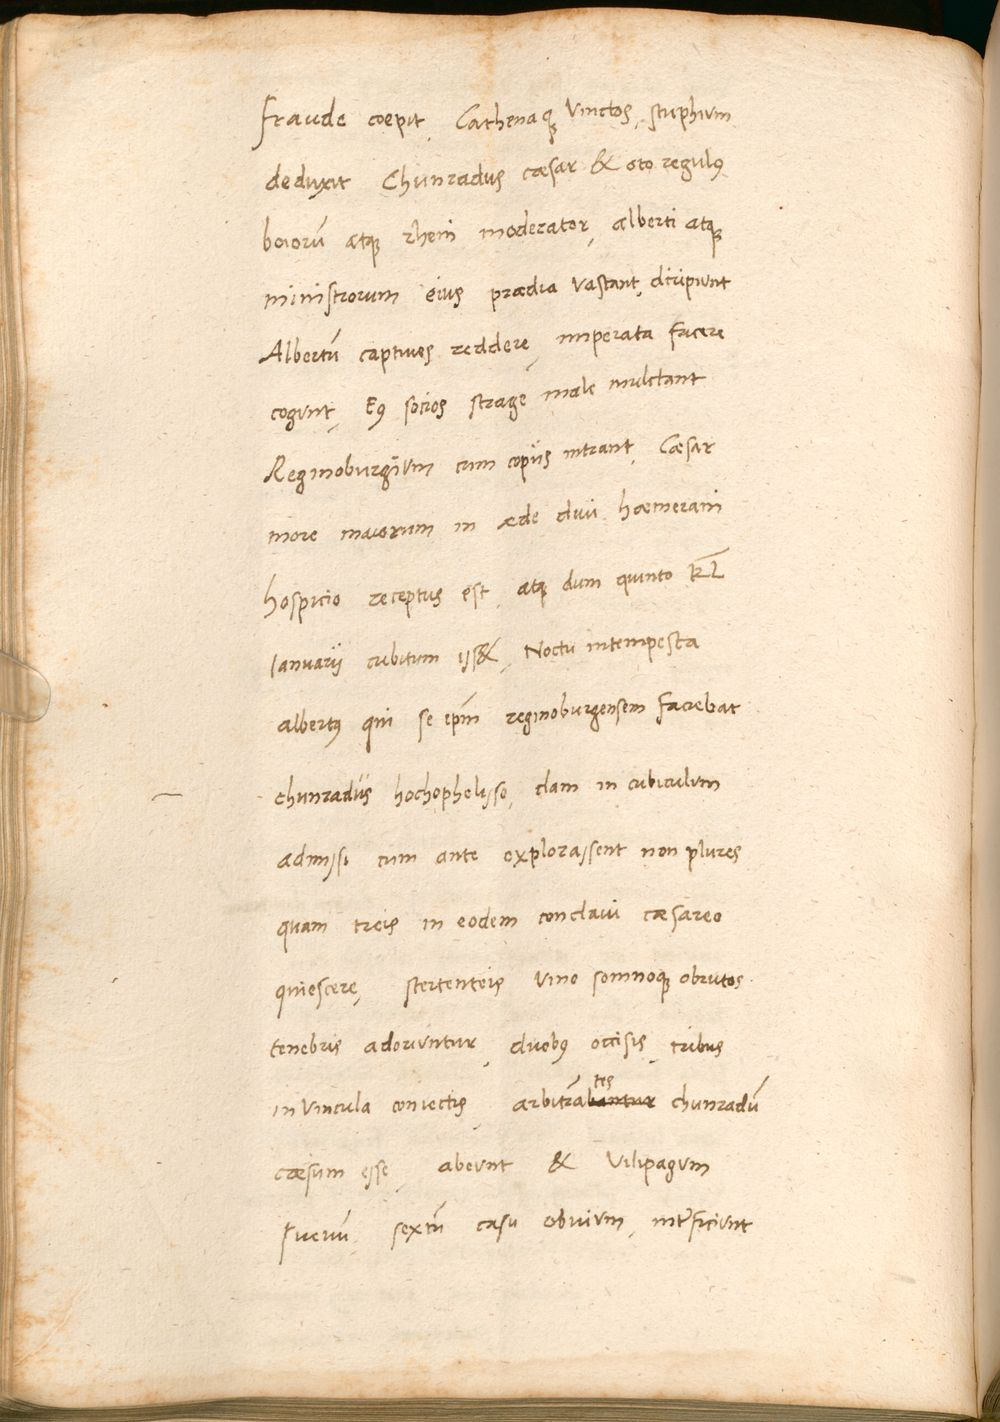 fraude coepit, Cathenaq; vinctos, stuphium
deduxit Chunradus cæsar & oto regulꝰ
boiorū atq; rheni moderator, alberti atq;
ministrorum eius prædia vastant, diripiunt
Albertū captivos reddere, imperata facere
cogunt, Eꝰ socios strage male mulctant
Reginoburgium cum copiis intrant, Cæsar
more maiorum in æde divi hæmerani
hospicio receptus est, atq; dum quinto KL̄
Ianuarij cubitum ijs&, Noctu intempesta
albertꝰ qui se epm̄ reginoburgensem faciebat
chunradus hochophelisso, clam in cubiculum
admissi cum ante explorassent non plures
quam treis in eodem conclavi cæsareo
quiescere, stertenteis vino somnoq; obrutos
tenebris adoriuntur, duobꝰ occisis, tribus
in vincula coniectis, arbitrātes chunradū
cæsum esse, abeunt & vilipagum
sextū casu obvium, interficiunt